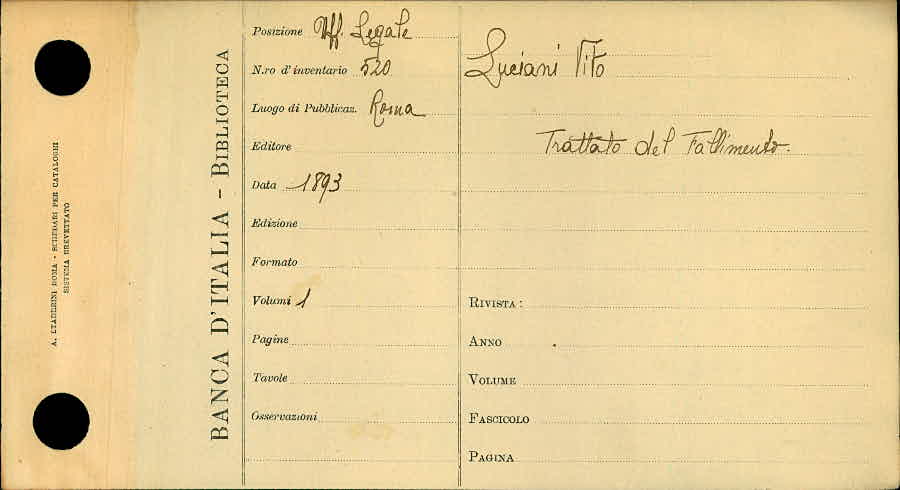 A. STADERINI ROMA - SCHEDARI PER CATALOGHI
SISTEMA BREVETTATO
BANCA D'ITALIA - BIBLIOTECA
Posizione Uff. Legale
N.ro d'inventario 520
Luogo di Pubblicaz. Roma
Editore
Data 1893
Edizione
Formato
Volumi 1
Pagine
Tavole
Osservazioni
Luciani Vito
Trattato del Fallimento.
RIVISTA:
ANNO
VOLUME
FASCICOLO
PAGINA